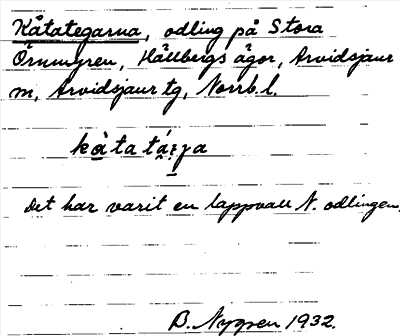 Kåtategarna, odling på Stora
Örnmyren, Hällbergs ägor, Arvidsjaur
m, Arvidsjaur tg, Norrb. l.
kåtatáıga
Det har varit en lappvall N. odlingen.
B. Nygren 1932.